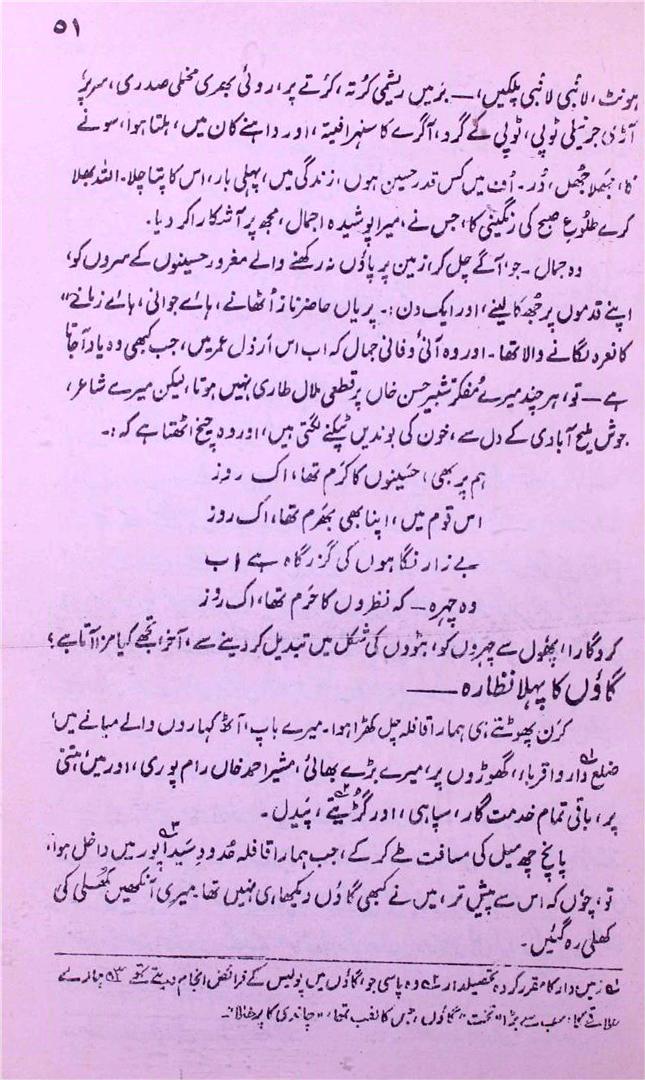 ۵۱
ہونٹ، لانبی لانبی پلکیں، — بَر میں ریشمی کُرتہ، کُرتے پر، روئی بھری مخملی صدری، سر پر
آڑی جرنیلی ٹوپی، ٹوپی کے گرد، آگرے کا سنہرا فیتہ، اور داہنے کان میں، ہلتا ہوا، سونے
کا، جھلا جھل، دُر۔ اُف میں کس قدر حسین ہوں، زندگی میں، پہلی بار، اس کا پتا چلا۔ اللہ بھلا
کرے طلوعِ صبح کی رنگینی کا، جس نے، میرا پوشیدہ اجمال، مجھ پر آشکارا کر دیا۔
وہ جمال۔ جو، آگے چل کر، زمین پر پاؤں نہ رکھنے والے مغرور حسینوں کے سروں کو،
اپنے قدموں پر جھکا لینے، اور ایک دن:۔ پریاں حاضر ناز اُٹھانے، ہائے جوانی، ہائے زمانے"
کا نعرہ لگانے والا تھا۔ اور وہ آنی و فانی جمال کہ اب اس ارذلِ عمر میں، جب کبھی وہ یاد آ جاتا
ہے — تو، ہر چند میرے مُفکر تشبیر حسن خاں پر قطعی ملال طاری نہیں ہوتا، لیکن میرے شاعر،
جوش ملیح آبادی کے دل سے، خون کی بوندیں ٹپکنے لگتی ہیں، اور وہ چیخ اٹھتا ہے کہ:۔
ہم پر بھی، حَسینوں کا کَرم تھا، اک روز
اس قوم میں، اپنا بھی بھَرم تھا، اک روز
بے زار نگاہوں کی گزرگاہ ہے اب
وہ چہرہ — کہ نظروں کا حَرم تھا، اک روز
کردگارا، پھول سے چہروں کو، بَبُولوں کی شکل میں تبدیل کر دینے سے، آخر تجھے کیا مزا آتا ہے؟
گاؤں کا پہلا نظارہ ——
کرن پھوٹتے ہی ہمارا قافلہ چل کھڑا ہوا۔ میرے باپ، آٹھ کہاروں والے میانے میں،
ضلع دار و اقربا، گھوڑوں پر، میرے بڑے بھائی، مشیر احمد خاں رام پوری، اور میں، ہتنی
پر، باقی تمام خدمت گار، سپاہی، اور گُڑیتے، پَیدل۔
پانچ چھ میل کی مسافت طے کر کے، جب ہمارا قافلہ حُدودِ سَیداپور میں داخل ہوا،
تو، چوں کہ اس سے پیش تر، میں نے کبھی گاؤں دیکھا ہی نہیں تھا۔ میری آنکھیں کھُلی کی
کھلی رہ گئیں۔
لہ زمیں دار کا مقرر کردہ تحصیلدار ۲ وہ پاسی جو، گاؤں میں پولیس کے فرائض انجام دیتے تھے ۳ ہمارے
علاقے کا، سب سے بڑا "تخت" گاؤں، جس کا لقب تھا، "چاندی کا